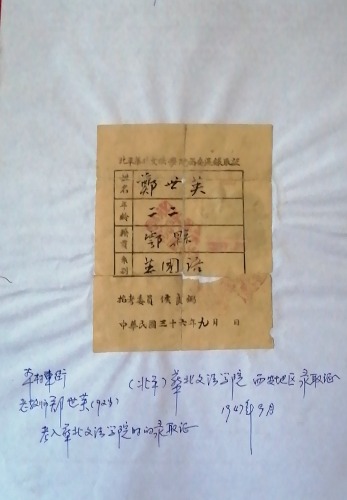 北平華北文法學院招考委員錄取証
姓名 鄭世英
年齡 二二
籍貫 鄠縣
系別 英国語
招考委員
中華民國三十六年九月 日
(北平)華北文法学院 西安地区录取证
1947年9月
老教师郑世英(92岁)
考入华北文法学院时的录取证